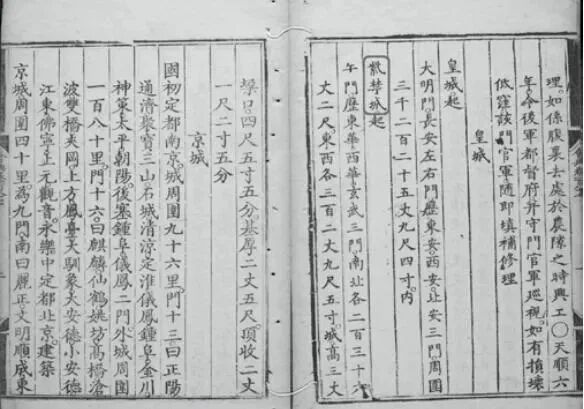 理。如係腹裏去處於農隙之時興工〇天順六
年。令後軍都督府并守門官軍巡視。如有損壞
低窪該門官軍隨即填補修理
皇城
皇城起
大明門長安左右門歷東安。西安。北安三門周圍
三千二百二十五丈九尺四寸。内
紫禁城起
午門歷東華西華玄武三門。南北各二百三十六
丈二尺。東西各三百二丈九尺五寸。城高三丈
口四尺五寸五分。基厚二丈五尺。頂收二丈
一尺二寸五分
京城
國初定都南京。城周圍九十六里。門十三。曰正陽
通濟聚寶三山石城清涼定淮儀鳳鍾阜金川
神策太平朝陽。後塞鍾阜儀鳳二門。外城周圍
一百八十里。門十六。曰麒麟仙鶴姚坊高橋滄
波雙橋夾岡上方鳳臺大馴象大安德小安德
江東佛寧上元觀音。永樂中定都北京。建築
京城周圍四十里。為九門。南曰麗正文明順成東